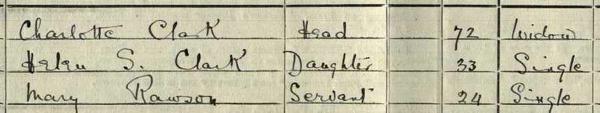 Charlotte Clark Head 72 Widow
Helen S. Clark Daughter 33 Single
Mary Rawson Servant 24 Single